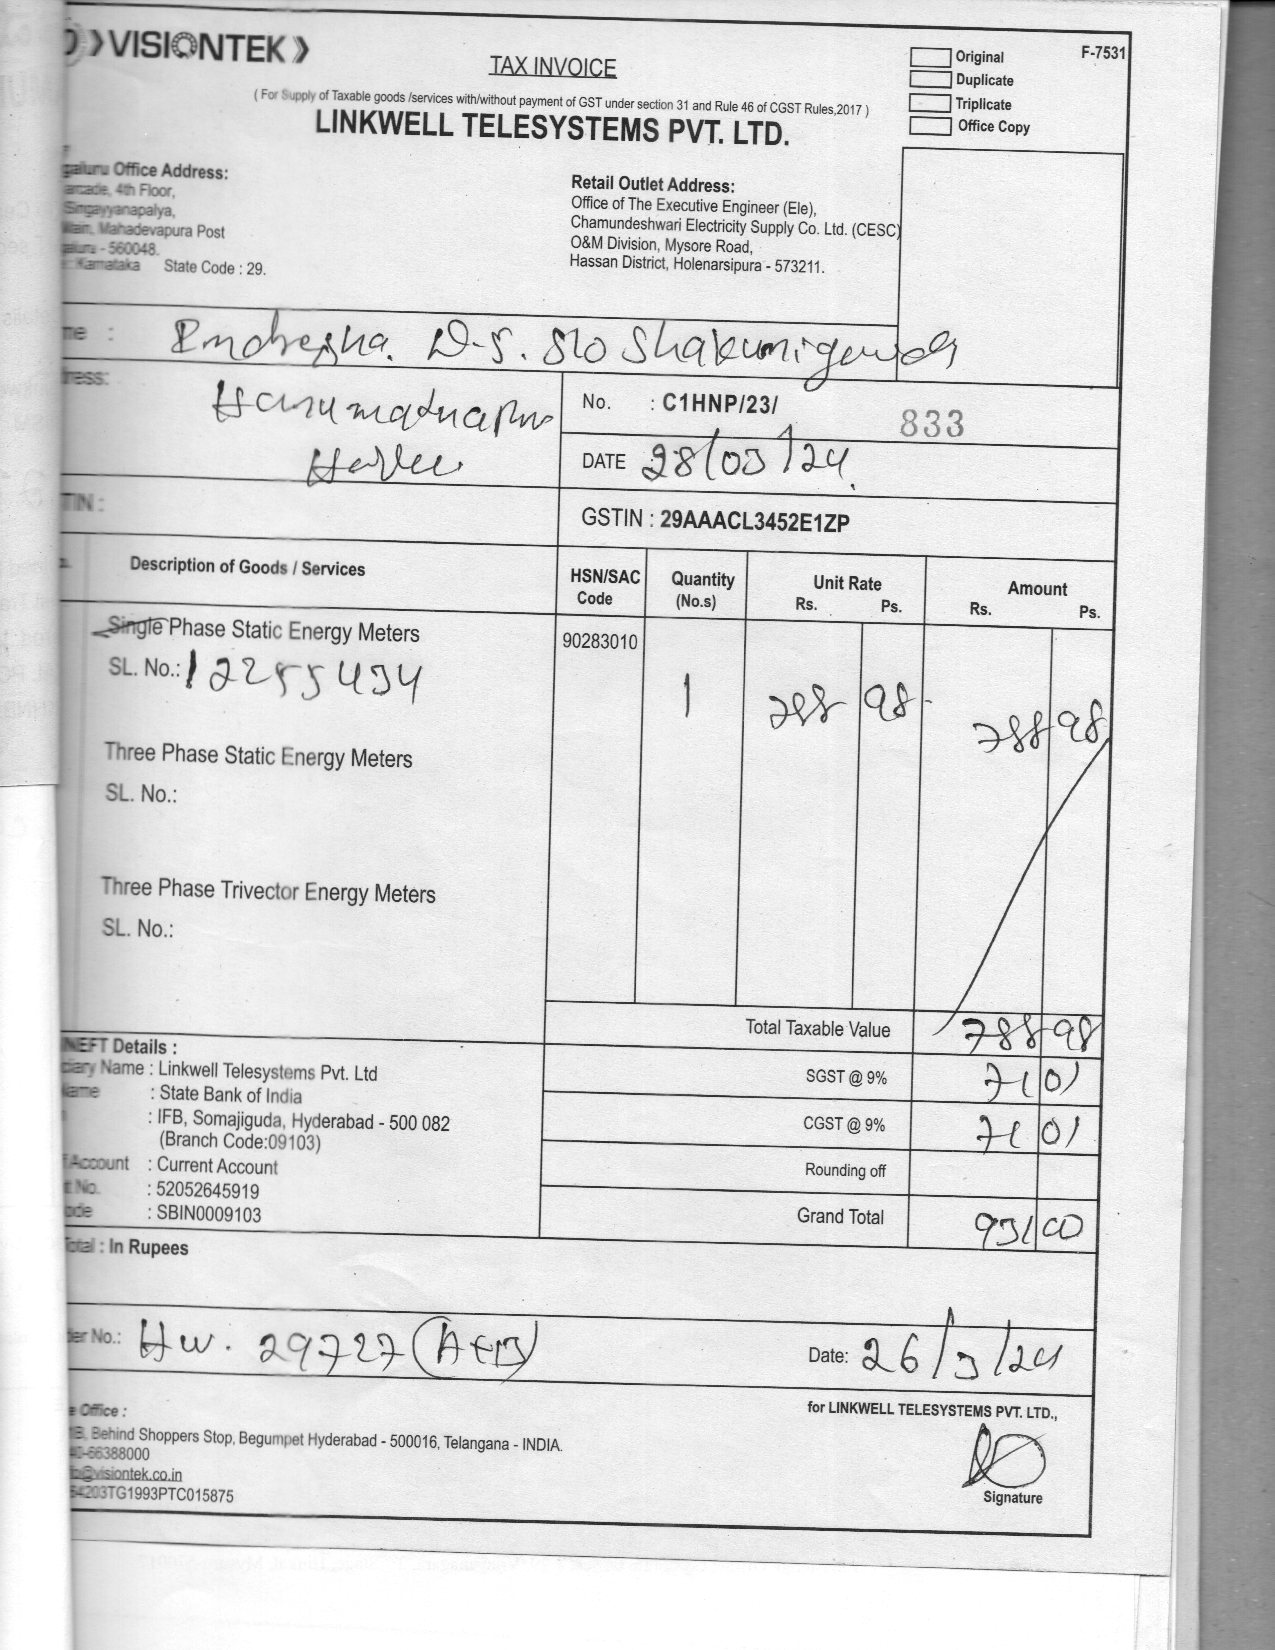 VISIONTEK
TAX INVOICE
( For Supply of Taxable goods /services with/without payment of GST under section 31 and Rule 46 of CGST Rules,2017 )
LINKWELL TELESYSTEMS PVT. LTD.
F-7531
Original
Duplicate
Triplicate
Office Copy
Office Address:
4th Floor,
Singayyanapalya,
Mahadevapura Post
- 560048.
Karnataka State Code : 29.
Retail Outlet Address:
Office of The Executive Engineer (Ele),
Chamundeshwari Electricity Supply Co. Ltd. (CESC)
O&M Division, Mysore Road,
Hassan District, Holenarsipura - 573211.
D.S. S/o Shakunigowda
No. : C1HNP/23/ 833
DATE 28/03/24.
GSTIN : 29AAACL3452E1ZP
Description of Goods / Services
HSN/SAC Code
Quantity (No.s)
Unit Rate Rs. Ps.
Amount Rs. Ps.
Single Phase Static Energy Meters
90283010
SL. No.: 12255434
1 788 98 788 98
Three Phase Static Energy Meters
SL. No.:
Three Phase Trivector Energy Meters
SL. No.:
Total Taxable Value 788 98
NEFT Details :
Name : Linkwell Telesystems Pvt. Ltd
: State Bank of India
: IFB, Somajiguda, Hyderabad - 500 082
(Branch Code:09103)
Account : Current Account
No. : 52052645919
: SBIN0009103
SGST @ 9% 71 01
CGST @ 9% 71 01
Rounding off
Grand Total 931 00
Total : In Rupees
No.: HW. 29727
Date: 26/3/24
for LINKWELL TELESYSTEMS PVT. LTD.,
Office :
Behind Shoppers Stop, Begumpet Hyderabad - 500016, Telangana - INDIA.
66388000
@visiontek.co.in
TG1993PTC015875
Signature